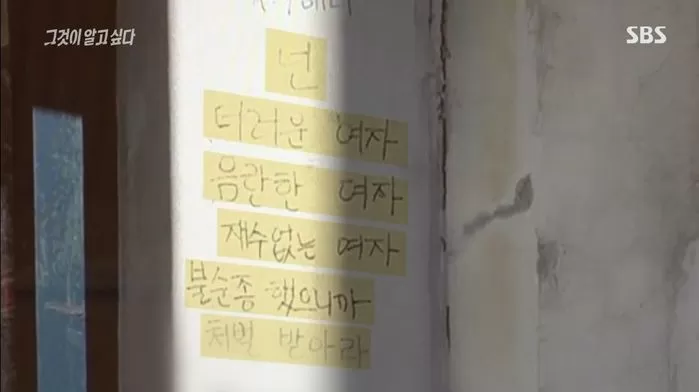 그것이 알고 싶다
SBS
넌
더러운 여자
음란한 여자
재수없는 여자
불순종 했으니까
처벌 받아라